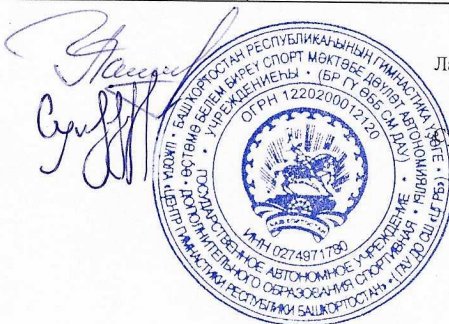 Ла
БАШҠОРТОСТАН РЕСПУБЛИКАҺЫНЫҢ ГИМНАСТИКА ҮҘӘГЕ
ӨҪТӘМӘ БЕЛЕМ БИРЕҮ СПОРТ МӘКТӘБЕ ДӘҮЛӘТ АВТОНОМИЯЛЫ
УЧРЕЖДЕНИЕҺЫ • (БР ГҮ ӨББ СМ ДАУ)
ОГРН 1220200012120
ИНН 0274971780
ГОСУДАРСТВЕННОЕ АВТОНОМНОЕ УЧРЕЖДЕНИЕ
ДОПОЛНИТЕЛЬНОГО ОБРАЗОВАНИЯ СПОРТИВНАЯ
ШКОЛА «ЦЕНТР ГИМНАСТИКИ РЕСПУБЛИКИ БАШКОРТОСТАН» • (ГАУ ДО СШ «ЦГ РБ»)